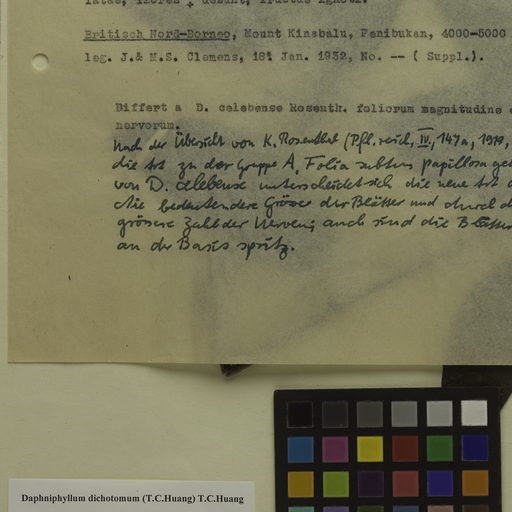 latae, flores ♀ desunt, fructus ignoti.
Britisch Nord-Borneo, Mount Kinabalu, Penibukan, 4000-5000
leg. J.& M.S. Clemens, 18. Jan. 1932, No. -- ( Suppl.).
Differt a D. celebense Rosenth. foliorum magnitudine
nervorum.
Nach der Übersicht von K. Rosenthal (Pfl. reich, IV, 147a, 1919,
die Art zu der Gruppe A, Folia subtus papillosa
von D. celebense unterscheidet sich die neue Art
die bedeutendere Grösse der Blätter und durch d
grössere Zahl der Nerven; auch sind die Blätter
an der Basis spitz.
Daphniphyllum dichotomum (T.C.Huang) T.C.Huang